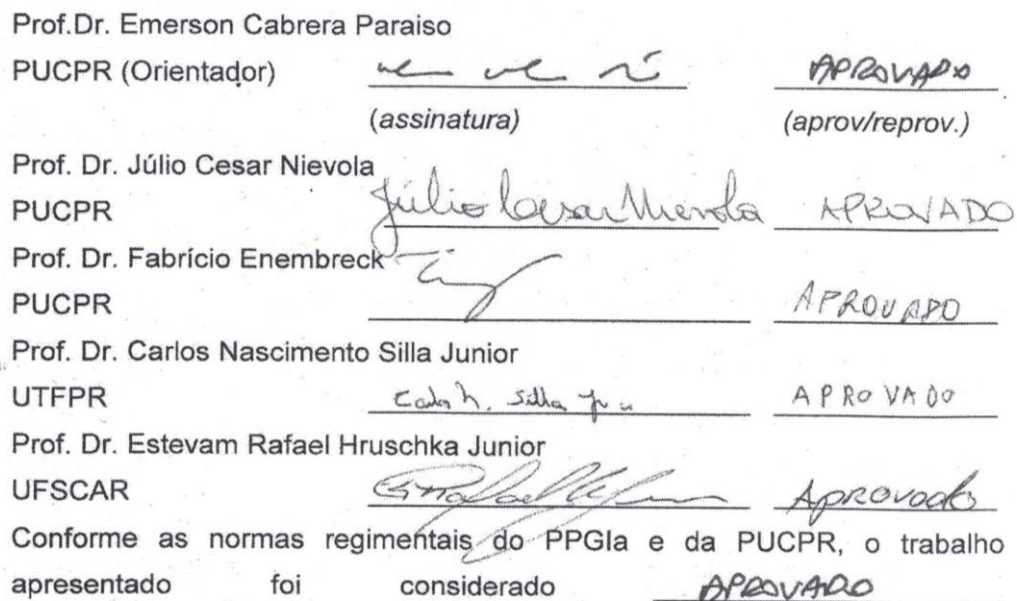 Prof.Dr. Emerson Cabrera Paraiso
PUCPR (Orientador) APROVADO
(assinatura) (aprov/reprov.)
Prof. Dr. Júlio Cesar Nievola
PUCPR Júlio Cesar Nievola APROVADO
Prof. Dr. Fabrício Enembreck
PUCPR APROVADO
Prof. Dr. Carlos Nascimento Silla Junior
UTFPR Carlos N. Silla Jr. APROVADO
Prof. Dr. Estevam Rafael Hruschka Junior
UFSCAR Aprovado
Conforme as normas regimentais do PPGIa e da PUCPR, o trabalho
apresentado foi considerado APROVADO